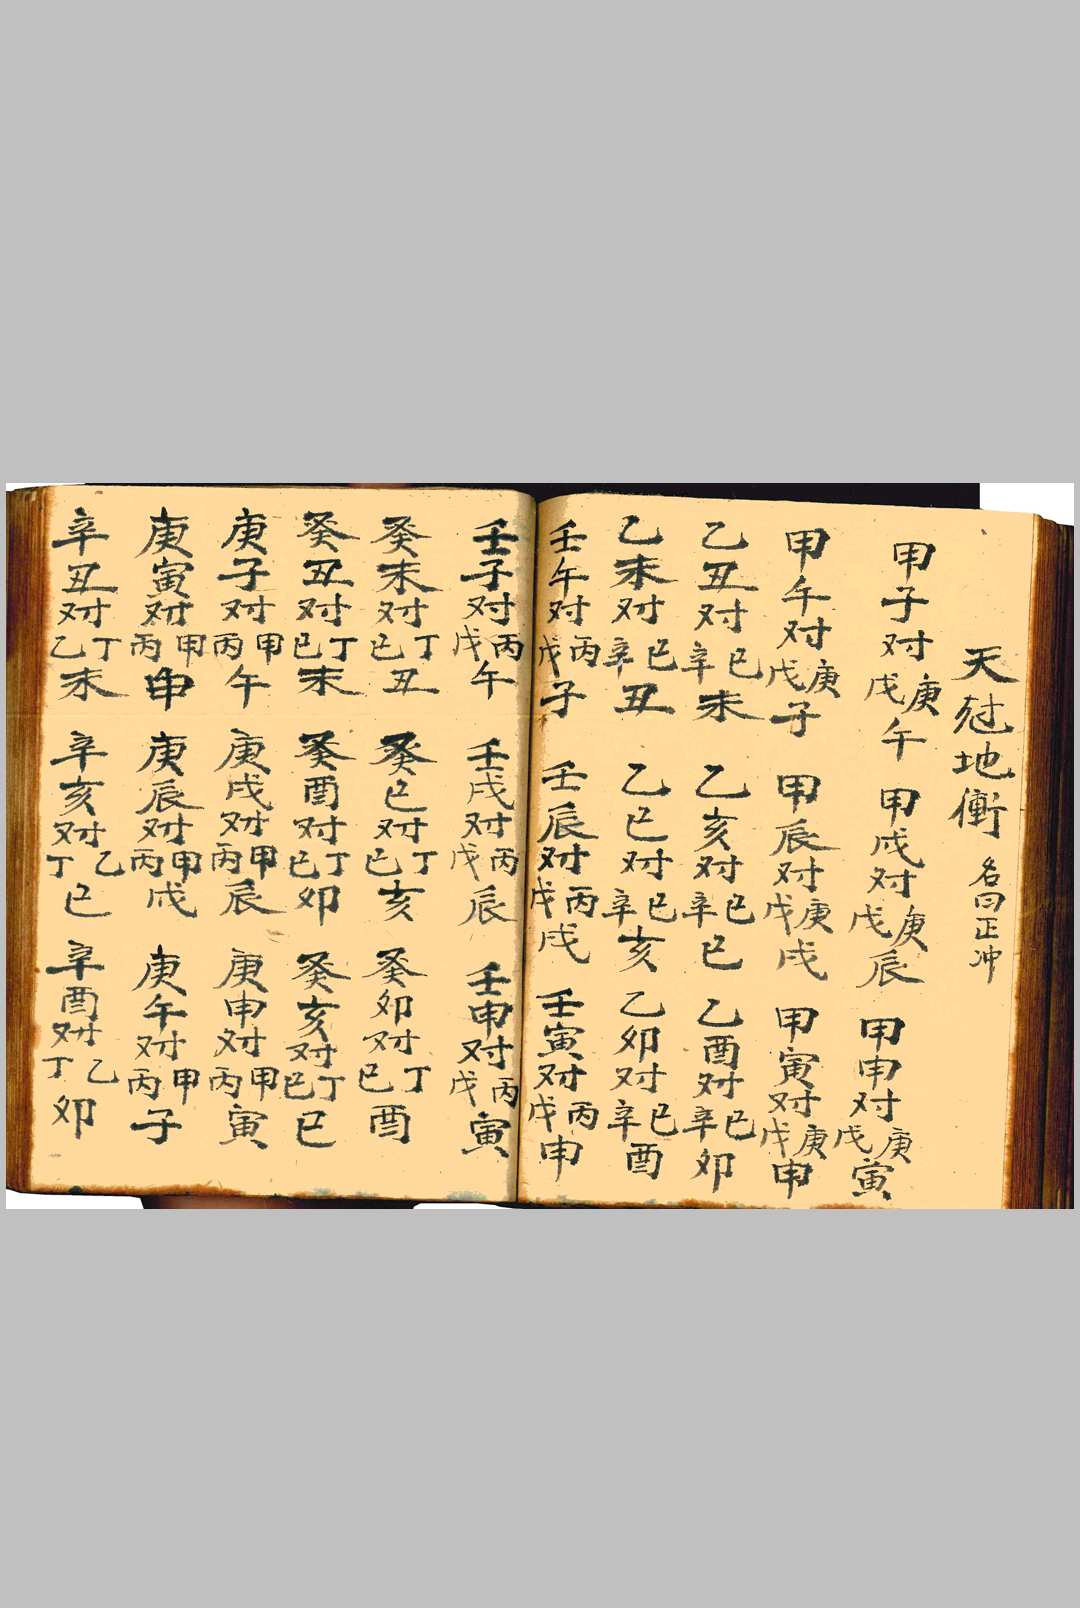 天尅地衝 名曰正冲
甲子对庚戊午 甲戌对庚戊辰 甲申对庚戊寅
甲午对庚戊子 甲辰对庚戊戌 甲寅对庚戊申
乙丑对巳辛未 乙亥对巳辛巳 乙酉对巳辛卯
乙未对巳辛丑 乙巳对巳辛亥 乙卯对巳辛酉
壬午对丙戊子 壬辰对丙戊戌 壬寅对丙戊申
壬子对丙戊午 壬戌对丙戊辰 壬申对丙戊寅
癸未对丁巳丑 癸巳对丁巳亥 癸卯对丁巳酉
癸丑对丁巳未 癸酉对丁巳卯 癸亥对丁巳巳
庚子对甲丙午 庚戌对甲丙辰 庚申对甲丙寅
庚寅对甲丙申 庚辰对甲丙戌 庚午对甲丙子
辛丑对丁乙未 辛亥对乙丁巳 辛酉对乙丁卯